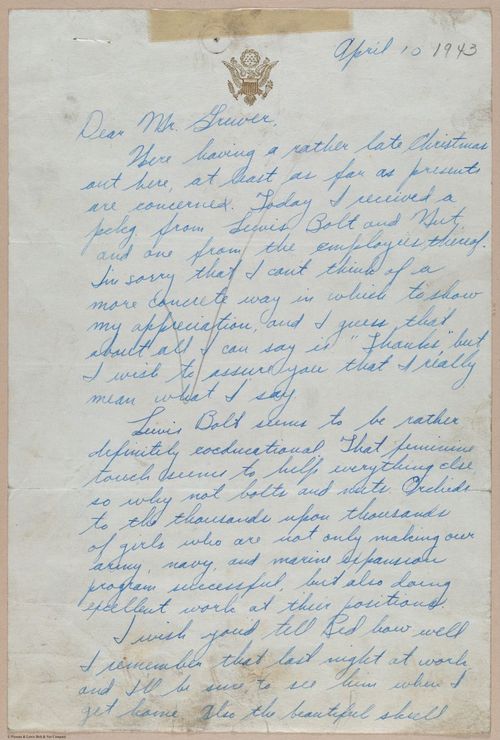 April 10 1943
Dear Mr. Gruver,
Were having a rather late Christmas
out here, at least as far as presents
are concerned. Today I received a
pckg from Lewis Bolt and Nut,
and one from the employees thereof.
I'm sorry that I can't think of a
more concrete way in which to show
my appreciation, and I guess that
about all I can say is "Thanks," but
I wish to assure you that I really
mean what I say.
Lewis Bolt seems to be rather
definitely coeducational. That feminine
touch seems to help everything else
so why not bolts and nuts. Orchids
to the thousands upon thousands
of girls who are not only making our
army, navy, and marine expansion
program successful, but also doing
excellent work at their positions.
I wish you'd tell Red how well
I remember that last night at work
and I'll be sure to see him when I
get home. Also the beautiful